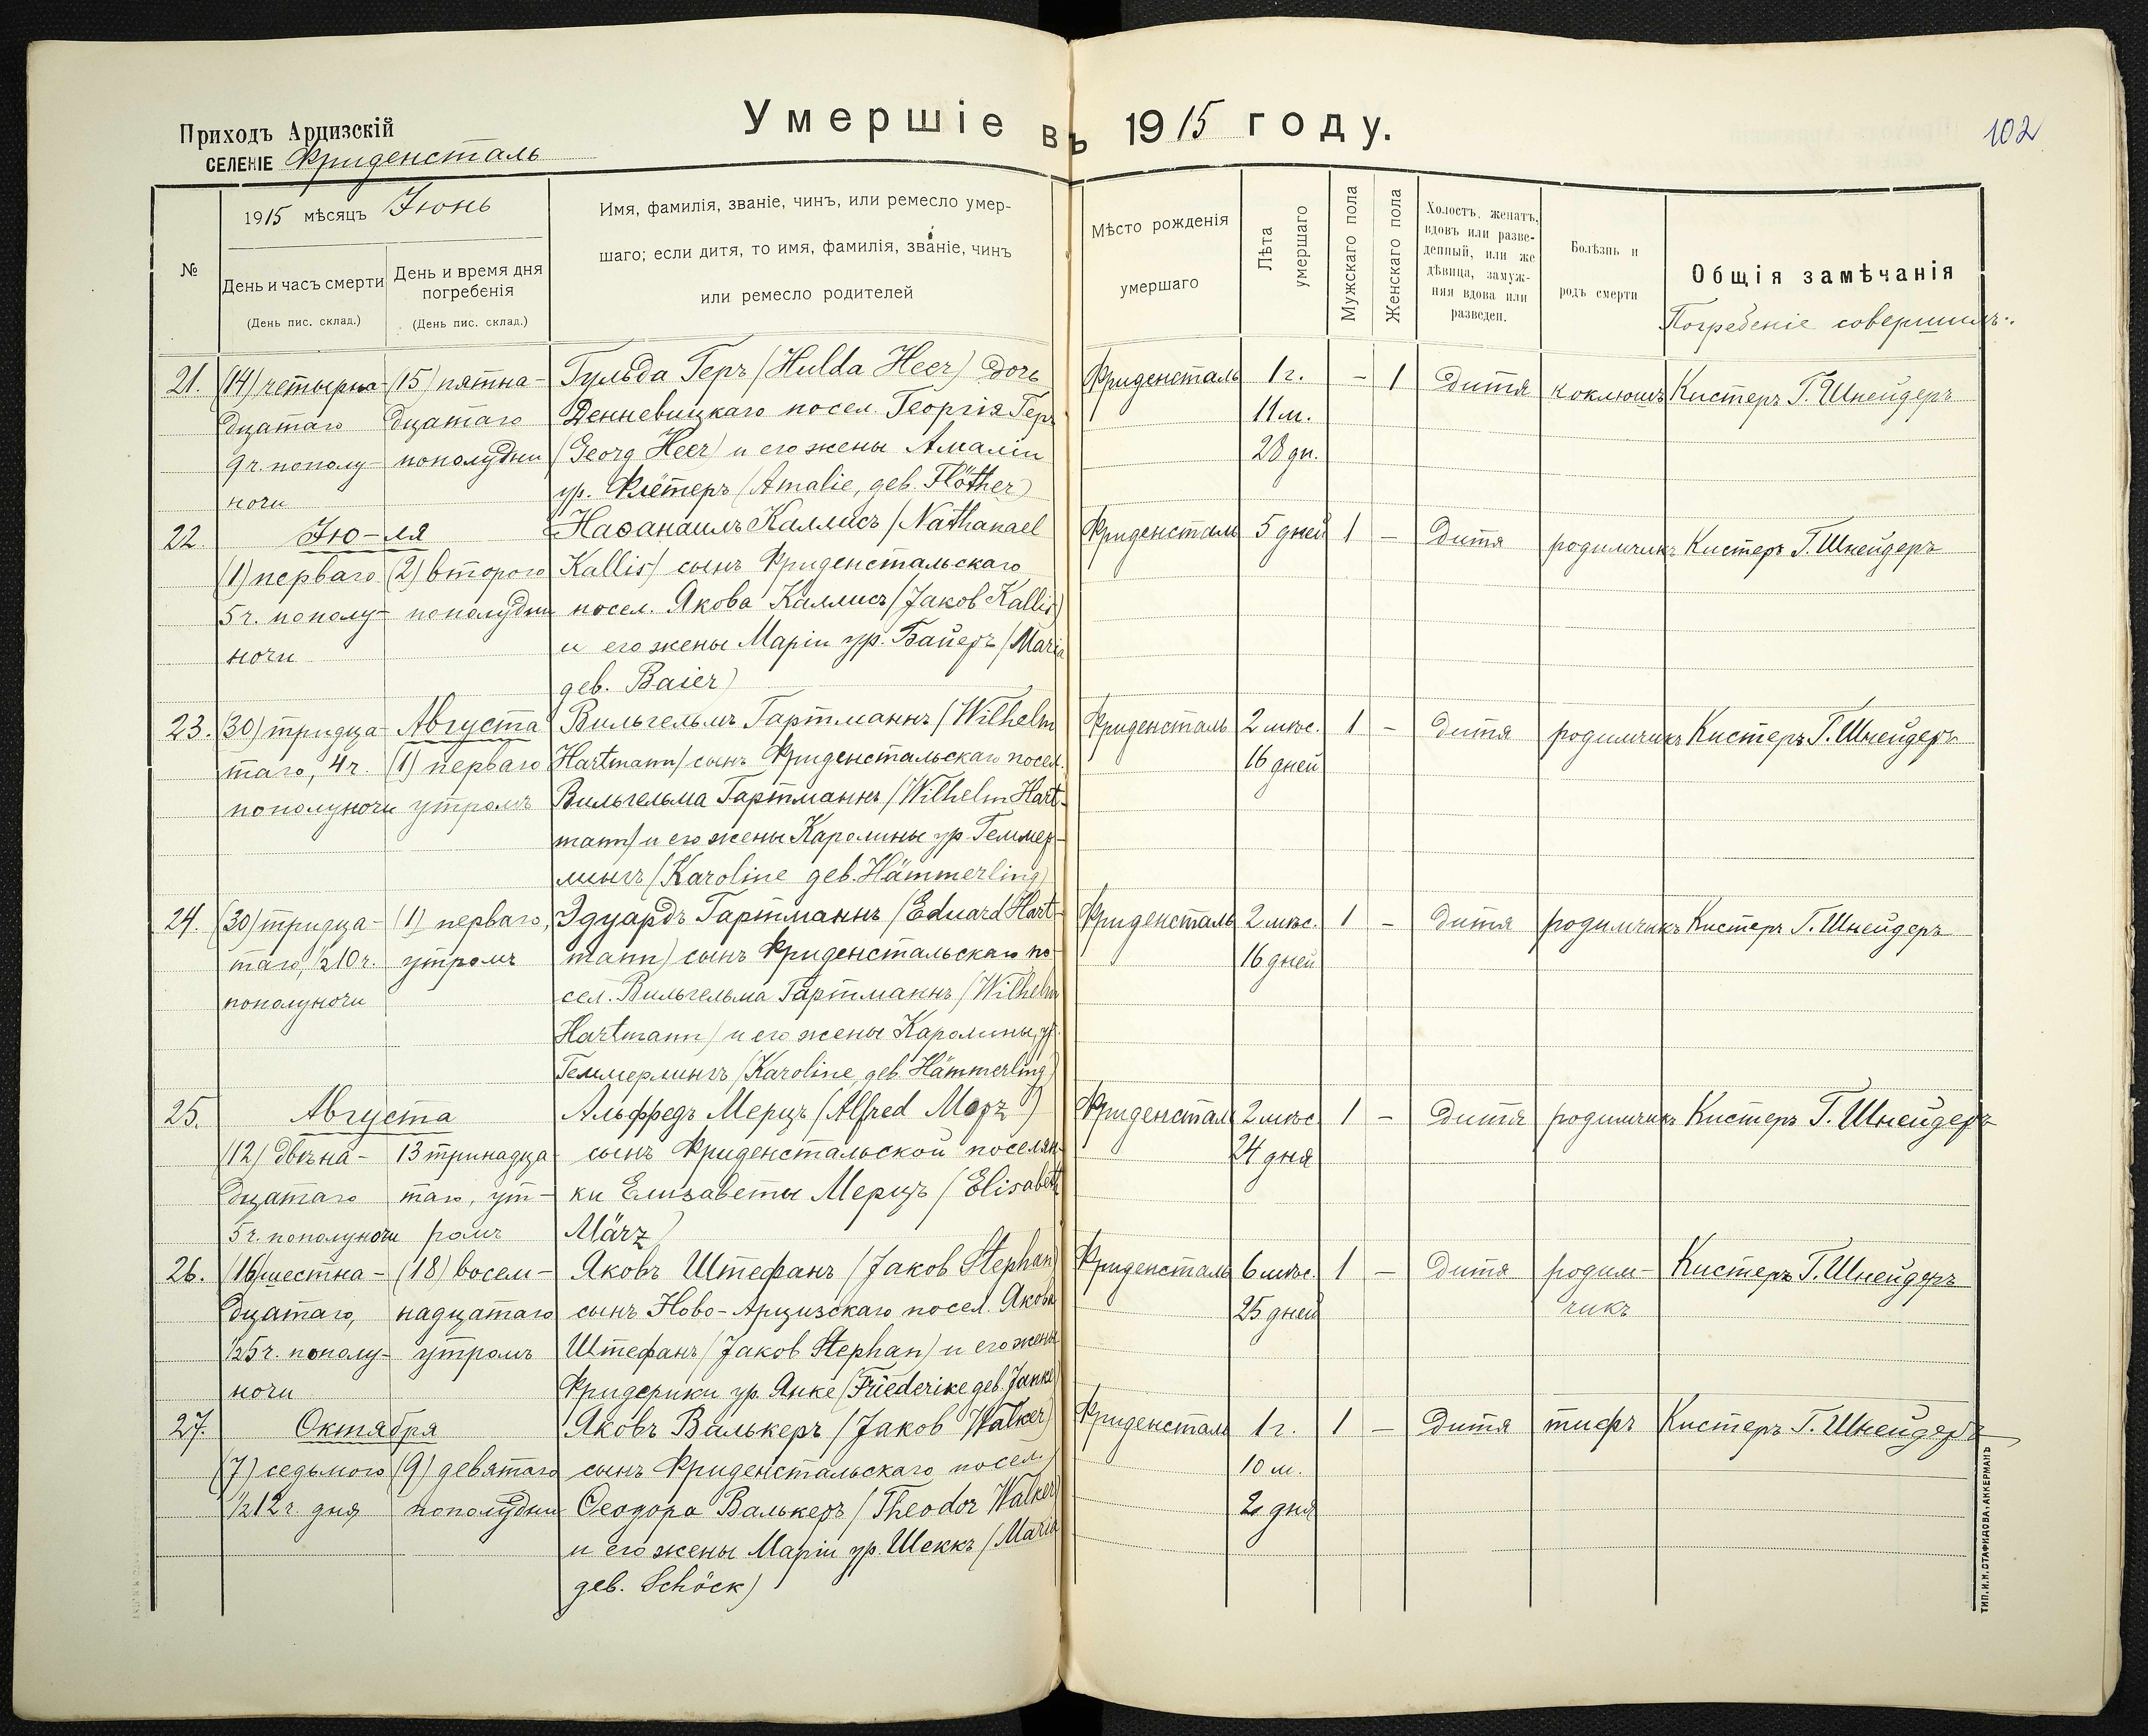 Приходъ Арцизскій
СЕЛЕНІЕ Фриденсталь
Умершіе въ 1915 году.
102
№
1915 мѣсяцъ Іюнь
День и часъ смерти
(День пис. склад.)
День и время дня погребенія
(День пис. склад.)
Имя, фамилія, званіе, чинъ, или ремесло умер-
шаго; если дитя, то имя, фамилія, званіе, чинъ
или ремесло родителей
Мѣсто рожденія
умершаго
Лѣта умершаго
Мужскаго пола
Женскаго пола
Холостъ, женатъ,
вдовъ или разве-
денный, или же
дѣвица, замуж-
няя вдова или
разведен.
Болѣзнь и
родъ смерти
Общія замѣчанія
Погребеніе совершилъ:
21. (14) четырна- (15) пятна- Гульда Геръ (Hulda Heer) дочь Фриденсталь 1 г. – 1 дитя коклюшъ Кистеръ Г. Шнейдеръ
дцатаго дцатаго Денневицкаго посел. Георгія Геръ 11 м.
9 ч. пополу- пополудни (Georg Heer) и его жены Амаліи 28 дн.
ночи ур. Флётеръ (Amalie, geb. Flöther)
22. Ію-ля Наѳанаилъ Каллисъ (Nathanael Фриденсталь 5 дней 1 – дитя родимчикъ Кистеръ Г. Шнейдеръ
(1) перваго (2) второго Kallis) сынъ Фриденстальскаго
5 ч. пополу- пополудни посел. Якова Каллисъ (Jakob Kallis)
ночи и его жены Маріи ур. Байеръ (Maria
geb. Baier)
23. (30) тридца- Августа Вильгельмъ Гартманнъ (Wilhelm Фриденсталь 2 мѣс. 1 – дитя родимчикъ Кистеръ Г. Шнейдеръ
таго, 4 ч. (1) перваго Hartmann) сынъ Фриденстальскаго посел. 16 дней
пополуночи утромъ Вильгельма Гартманнъ (Wilhelm Hart-
mann) и его жены Каролины ур. Геммер-
лингъ (Karoline geb. Hämmerling)
24. (30) тридца- (1) перваго, Эдуардъ Гартманнъ (Eduard Hart- Фриденсталь 2 мѣс. 1 – дитя родимчикъ Кистеръ Г. Шнейдеръ
таго, ½10 ч. утромъ mann) сынъ Фриденстальскаго по- 16 дней
пополуночи сел. Вильгельма Гартманнъ (Wilhelm
Hartmann) и его жены Каролины, ур.
Геммерлингъ (Karoline, geb. Hämmerling)
25. Августа Альфредъ Мерцъ (Alfred März) Фриденсталь 2 мѣс. 1 – дитя родимчикъ Кистеръ Г. Шнейдеръ
(12) двѣна- 13 тринадца- сынъ Фриденстальской поселян- 24 дня
дцатаго таго, ут- ки Елизаветы Мерцъ (Elisabeth
5 ч. пополуночи ромъ März)
26. (16) шестна- (18) восем- Яковъ Штефанъ (Jakob Stephan) Фриденсталь 6 мѣс. 1 – дитя родим- Кистеръ Г. Шнейдеръ
дцатаго, надцатаго сынъ Ново-Арцизскаго посел. Якова 25 дней чикъ
½5 ч. пополу- утромъ Штефанъ (Jakob Stephan) и его жены
ночи Фридерики ур. Янке (Friederike geb. Janke)
27. Октября Яковъ Валькеръ (Jakob Walker) Фриденсталь 1 г. 1 – дитя тифъ Кистеръ Г. Шнейдеръ
(7) седьмого (9) девятаго сынъ Фриденстальскаго посел. 10 м.
½12 ч. дня пополудни Ѳеодора Валькеръ (Theodor Walker) 2 дня
и его жены Маріи ур. Шеккъ (Maria
geb. Schöck)
ТИП. И. М. СТАФИДОВА, АККЕРМАНЪ